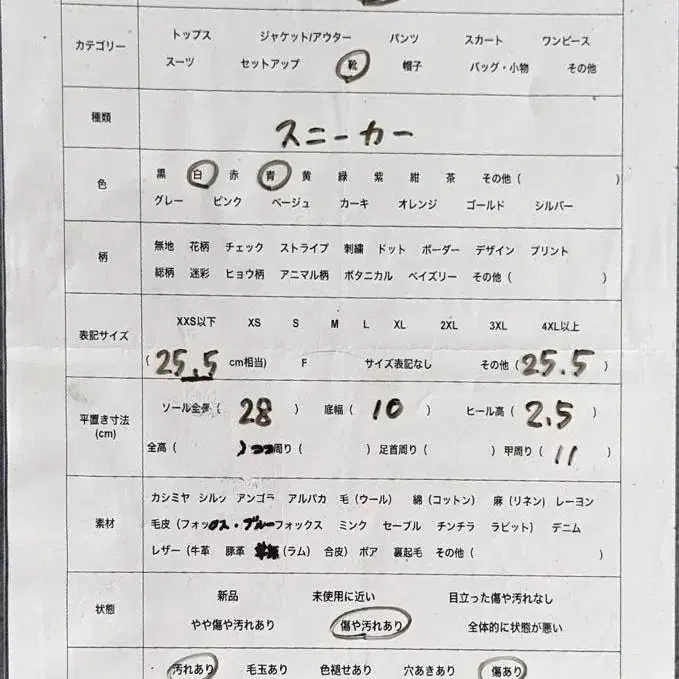 カテゴリー
トップス ジャケット/アウター パンツ スカート ワンピース
スーツ セットアップ 靴 帽子 バッグ・小物 その他
種類
スニーカー
色
黒 白 赤 青 黄 緑 紫 紺 茶 その他 ( )
グレー ピンク ベージュ カーキ オレンジ ゴールド シルバー
柄
無地 花柄 チェック ストライプ 刺繍 ドット ボーダー デザイン プリント
総柄 迷彩 ヒョウ柄 アニマル柄 ボタニカル ペイズリー その他 ( )
表記サイズ
XXS以下 XS S M L XL 2XL 3XL 4XL以上
( 25.5 cm相当) F サイズ表記なし その他 ( 25.5 )
平置き寸法
(cm)
ソール全長 ( 28 ) 底幅 ( 10 ) ヒール高 ( 2.5 )
全高 ( ) 周り ( ) 足首周り ( ) 甲周り ( 11 )
素材
カシミヤ シルク アンゴラ アルパカ 毛 (ウール) 綿 (コットン) 麻 (リネン) レーヨン
毛皮 (フォックス・ブルーフォックス ミンク セーブル チンチラ ラビット) デニム
レザー (牛革 豚革 (ラム) 合皮) ボア 裏起毛 その他 ( )
状態
新品 未使用に近い 目立った傷や汚れなし
やや傷や汚れあり 傷や汚れあり 全体的に状態が悪い
汚れあり 毛玉あり 色褪せあり 穴あきあり 傷あり